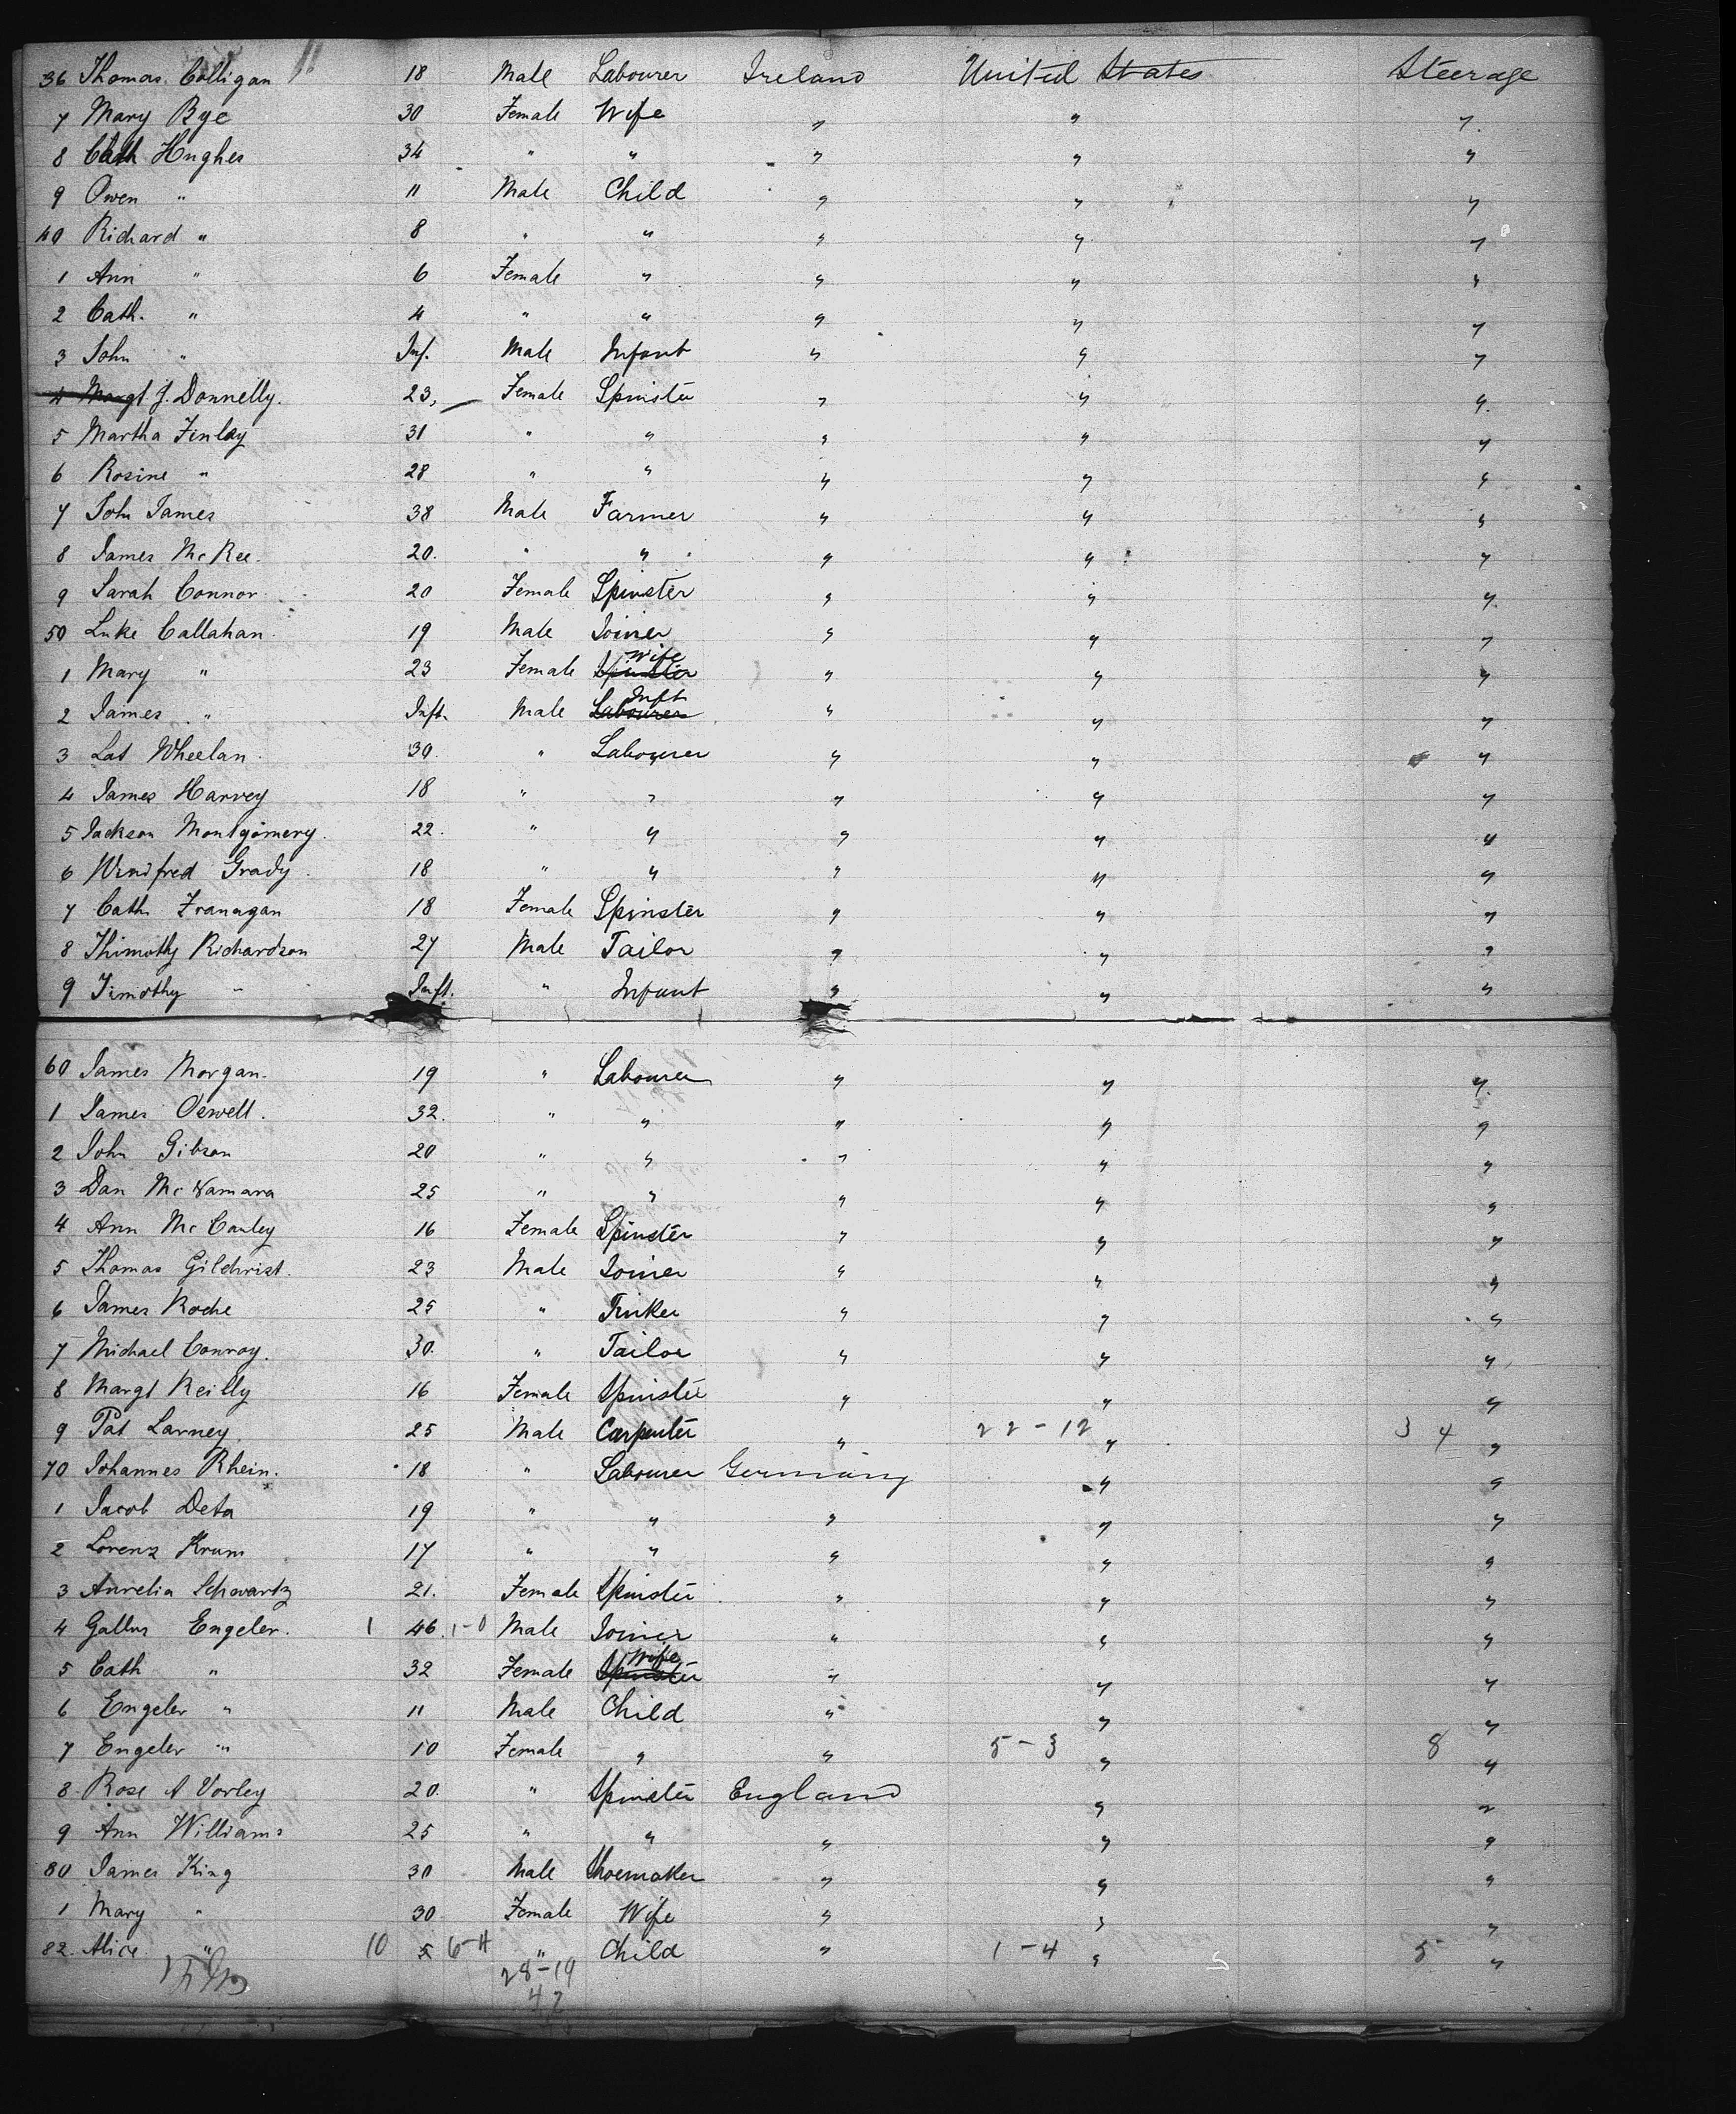 11
36 Thomas Colligan 18 Male Labourer Ireland United States Steerage
7 Mary Rye 30 Female Wife " " "
8 Cath Hughes 34 " " " " "
9 Owen " 11 Male Child " " "
40 Richard " 8 " " " " "
1 Ann " 6 Female " " " "
2 Cath. " 4 " " " " "
3 John " Inf. Male Infant " " "
4 Margt J. Donnelly. 23, Female Spinster " " "
5 Martha Finlay 31 " " " " "
6 Rosine " 28 " " " " "
7 John James 38 Male Farmer " " "
8 James McKee. 20. " " " " "
9 Sarah Connor 20 Female Spinster " " "
50 Luke Callahan. 19 Male Joiner " " "
1 Mary " 23 Female Spinster Wife " " "
2 James " Inft. Male Labourer Inft " " "
3 Lat Wheelan. 30. " Labourer " " "
4 James Harvey 18 " " " " "
5 Jackson Montgomery. 22. " " " " "
6 Winifred Grady. 18 " " " " "
7 Cath Franagan 18 Female Spinster " " "
8 Thimothy Richardson 27 Male Tailor " " "
9 Timothy " Inft. " Infant " " "
60 James Morgan. 19 " Labourer " " "
1 James Oewell. 32. " " " " "
2 John Gibson 20 " " " " "
3 Dan McNamara 25 " " " " "
4 Ann McCauley 16 Female Spinster " " "
5 Thomas Gilchrist. 23 Male Joiner " " "
6 James Roche 25 " Tinker " " "
7 Michael Conroy. 30. " Tailor " " "
8 Margt Reilly 16 Female Spinster " " "
9 Pat Larney. 25 Male Carpenter " 22-12 " 34 "
70 Johannes Rhein. 18 " Labourer Germany " "
1 Jacob Deta 19 " " " " "
2 Lorenz Krum 17 " " " " "
3 Aurelia Schwartz 21. Female Spinster " " "
4 Gallus Engeler. 1 46. 1-0 Male Joiner " " "
5 Cath " 32 Female Spinster Wife " " "
6 Engeler " 11 Male Child " " "
7 Engeler " 10 Female " " 5-3 " 8 "
8 Rose A Vorley 20. " Spinster England " "
9 Ann Williams 25 " " " " "
80 James King 30 Male Shoemaker " " "
1 Mary " 30 Female Wife " " "
82. Alice " 10 5 6-4 " Child " 1-4 " 5 "
28-19
47